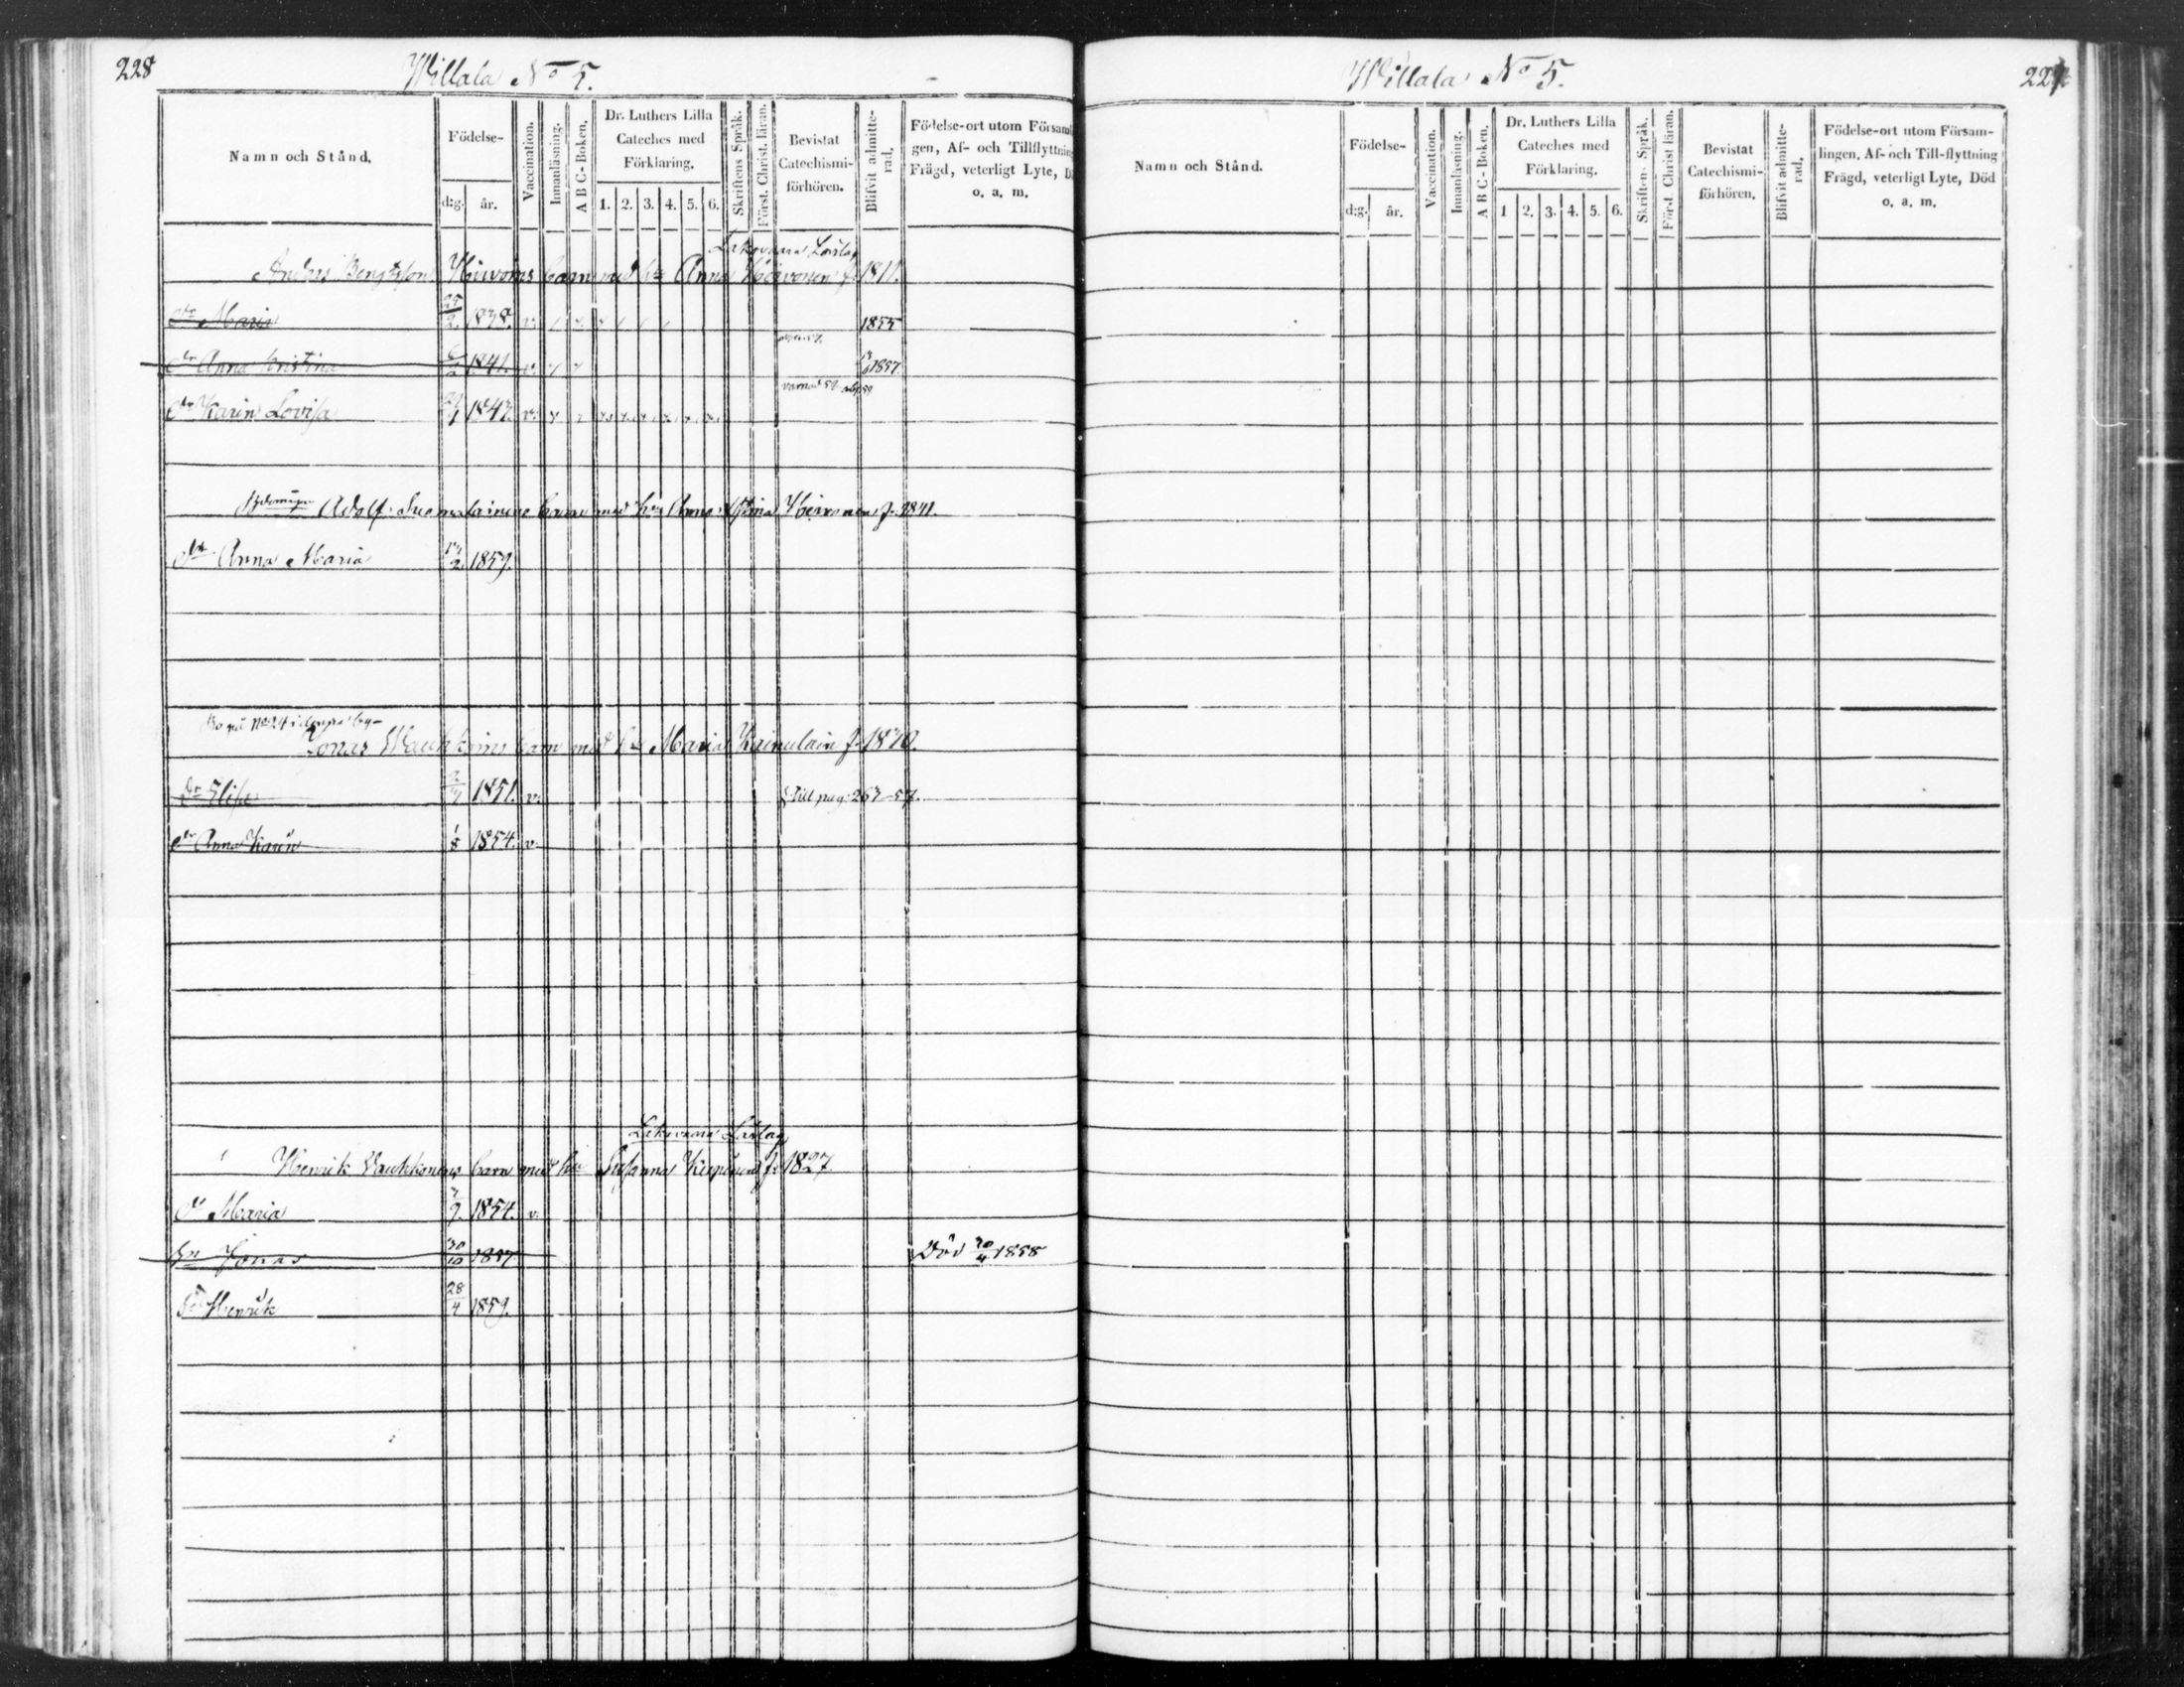 228
Willala No 5.
Namn och Stånd.
Födelse-
d:g. år.
Vaccination.
Innanläsning.
A B C-Boken.
Dr. Luthers Lilla
Cateches med
Förklaring.
1. 2. 3. 4. 5. 6.
Skriftens Språk.
Först. Christ. läran.
Bevistat
Catechismi-
förhören.
Blifvit admitte-
rad.
Födelse-ort utom Försam
gen, Af- och Tillflyttning
Frägd, veterligt Lyte, D
o. a. m.
Anders Bengtsson Hirvonens barn med h:u Anna Hirvonen f. 1811.
Dr Maria 1838. v. 1855
Dr Anna Kristina 1841. v. 1857.
Dr Karin Lovisa 1843. v.
Adolf barn med h:u Anna Stina Hirvonen f. 1841.
Dr Anna Maria 1859.
Bo på No 24 i denna by
Jonas Wauhkoins barn med h:u Maria Kainulain f. 1830.
Dr Elisa 1851. v. till pag. 263-57.
Dr Anna Karin 1/8 1854. v.
Henrik Vauhkonens barn med h:u Susanna f. 1827.
Dr Maria 1854. v.
Sn Jonas 30/10 1857 Död 30/4 1858
Sn Henrik 28/4 1859.
Willala No 5.
Namn och Stånd.
Födelse-
d:g. år.
Vaccination.
Innanläsning.
A B C-Boken.
Dr. Luthers Lilla
Cateches med
Förklaring.
1 2. 3. 4. 5. 6.
Skriftens Språk.
Först. Christ läran.
Bevistat
Catechismi-
förhören.
Blifvit admitte-
rad.
Födelse-ort utom Försam-
lingen, Af- och Till-flyttning
Frägd, veterligt Lyte, Död
o. a. m.